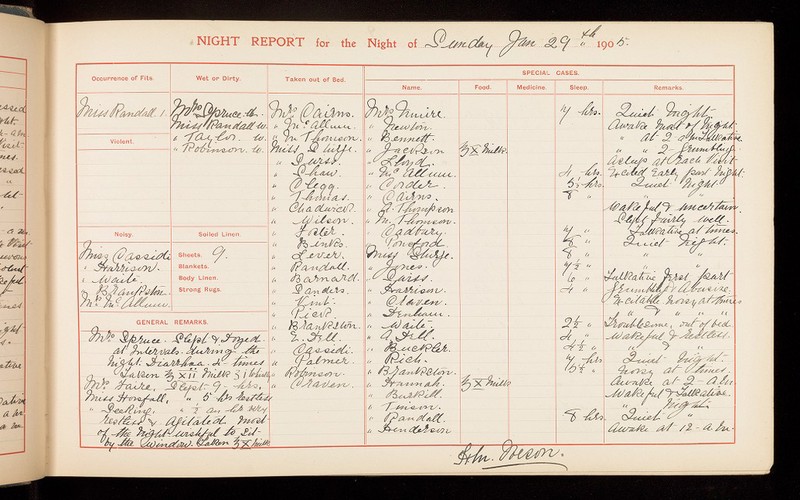 NIGHT REPORT for the Night of Sunday Jan 29th 1905.
Occurrence of Fits.
Miss Randall 1.
Violent.
Noisy.
Miss Casside
" Harrison.
" Waite.
" Blankston.
Mrs McAllum.
Wet or Dirty.
Mrs Spruce w.
Miss Randall w.
" Taylor w.
" Robinson w.
Soiled Linen.
Sheets 9.
Blankets.
Body Linen.
Strong Rugs.
GENERAL REMARKS.
Mrs Spruce. Slept & dozed
at Intervals during the
Night. Diarrhœa 2 times
Taken ℥xii Milk
Mrs Faire, Slept 9 hrs.
Miss Horsfall, " 5 hrs restless
" Deeking. " ½ an hr very
restless & Agitated most
of the Night wishful to sit
by the window. Taken ℥x Milk
Taken out of Bed.
Mrs Cairns.
" McAllum.
" M. Thomson.
Miss Sturge.
" Shaw.
" Clegg.
" Thomas.
" Chadwick.
" Wilson.
" Foster.
" Binks.
" Lever.
" Randall.
" Barnard.
" Sanders.
" Vint.
" Rice.
" Blankston.
" E. Hill
" Casside.
" Palmer.
" Robinson.
" Craven.
SPECIAL CASES.
Name.
Food.
Medicine.
Sleep.
Remarks.
Mrs Muire. 7 hrs. Quiet Night.
" Newton. Awake Most of Night.
" Bennett. " at 2 a.m. Talkative
" Jackson ℥x Milk. " " 2 " Grumbling.
" Lloyd. Asleep at Each Visit
" McAllum. 4 hrs. Excited Early part Night.
" Corder. 5½ hrs. Quiet Night.
" Cairns. 8 "
" Thompson Wakeful & uncertain.
" M. Thomson. Slept fairly well.
" Cadbury. 7 " Talkative at times.
" 8 " Quiet Night.
Miss Sturge. 8 " " "
" Jones. 7½ " "
" 6 " Talkative first part
" Harrison. 4 " Grumbling & Abusive.
" Craven. Excitable Noisy at times
" Denham. " " " "
" Waite. 2½ " Troublesome, out of bed.
" A. Hill. 4 " Wakeful & Restless.
" Buckler. 4½ "
" Rich. 7 hrs Quiet Night.
" Blankston. 5½ " Noisy at times.
" Hannah. ℥x Milk Awake at 2 a.m.
" Burkill. Wakeful & Talkative.
" Vinson. " Night.
" Randall. 8 hrs. Quiet "
" Henderson Awake at 12 a.m.